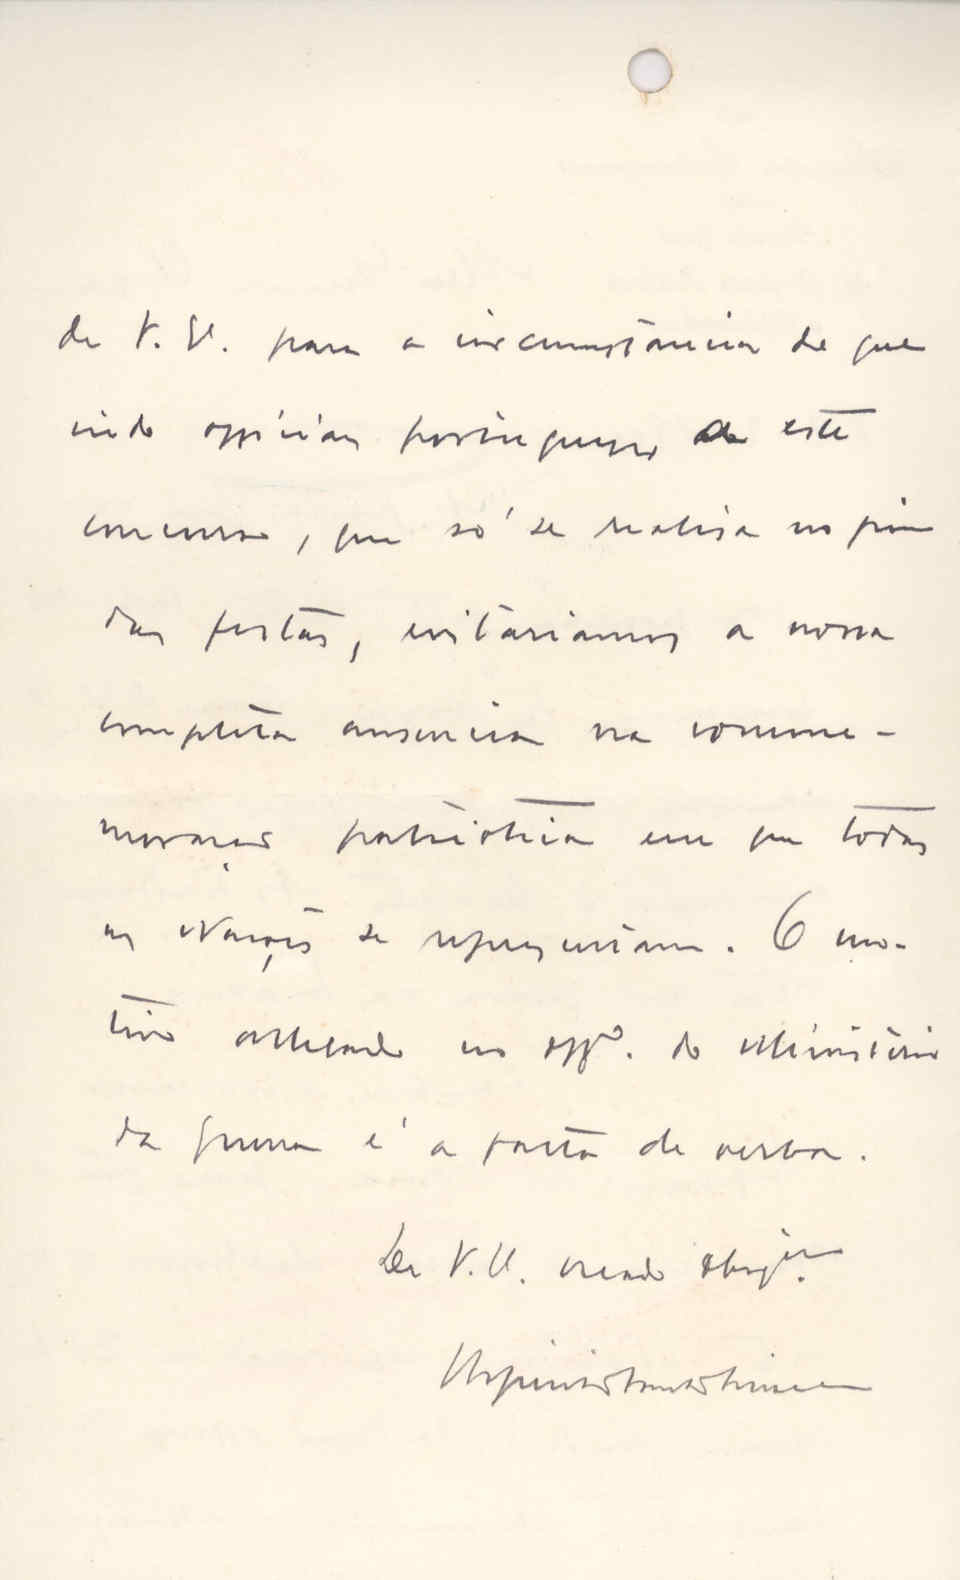 de V. Ex. para a circumstancia de que
indo officiaes portuguezes a este
concurso, que só se realisa no fim
das festas, evitariamos a nossa
completa ausencia na comme-
moração patriotica em que todas
as Nações se representam. O mo-
tivo allegado no off.º do Ministerio
da guerra é a falta de verba.
De V. Ex. creado obrig.